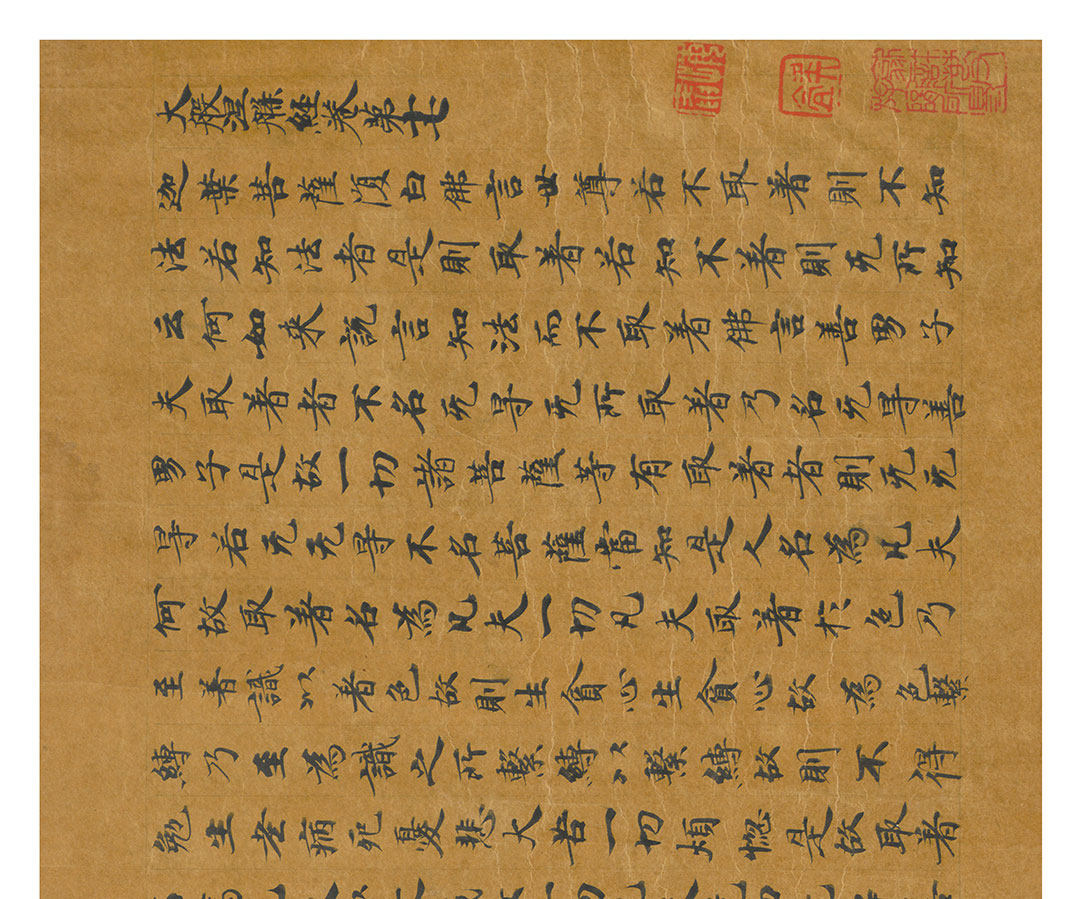 大般涅槃經卷第十七
迦葉菩薩復白佛言世尊若不取着則不知
法若知法者是則取着若知不着則无所知
云何如来說言知法而不取着佛言善男子
夫取着者不名无㝵无所取着乃名无㝵善
男子是故一切諸菩薩等有取着者則无无
㝵若无无㝵不名菩薩當知是人名為凡夫
何故取着名為凡夫一切凡夫取着於色乃
至着識以着色故則生貪心生貪心故為色繫
縛乃至為識之所繫縛以繫縛故則不得
勉生老病死憂悲大苦一切煩惚是故取着